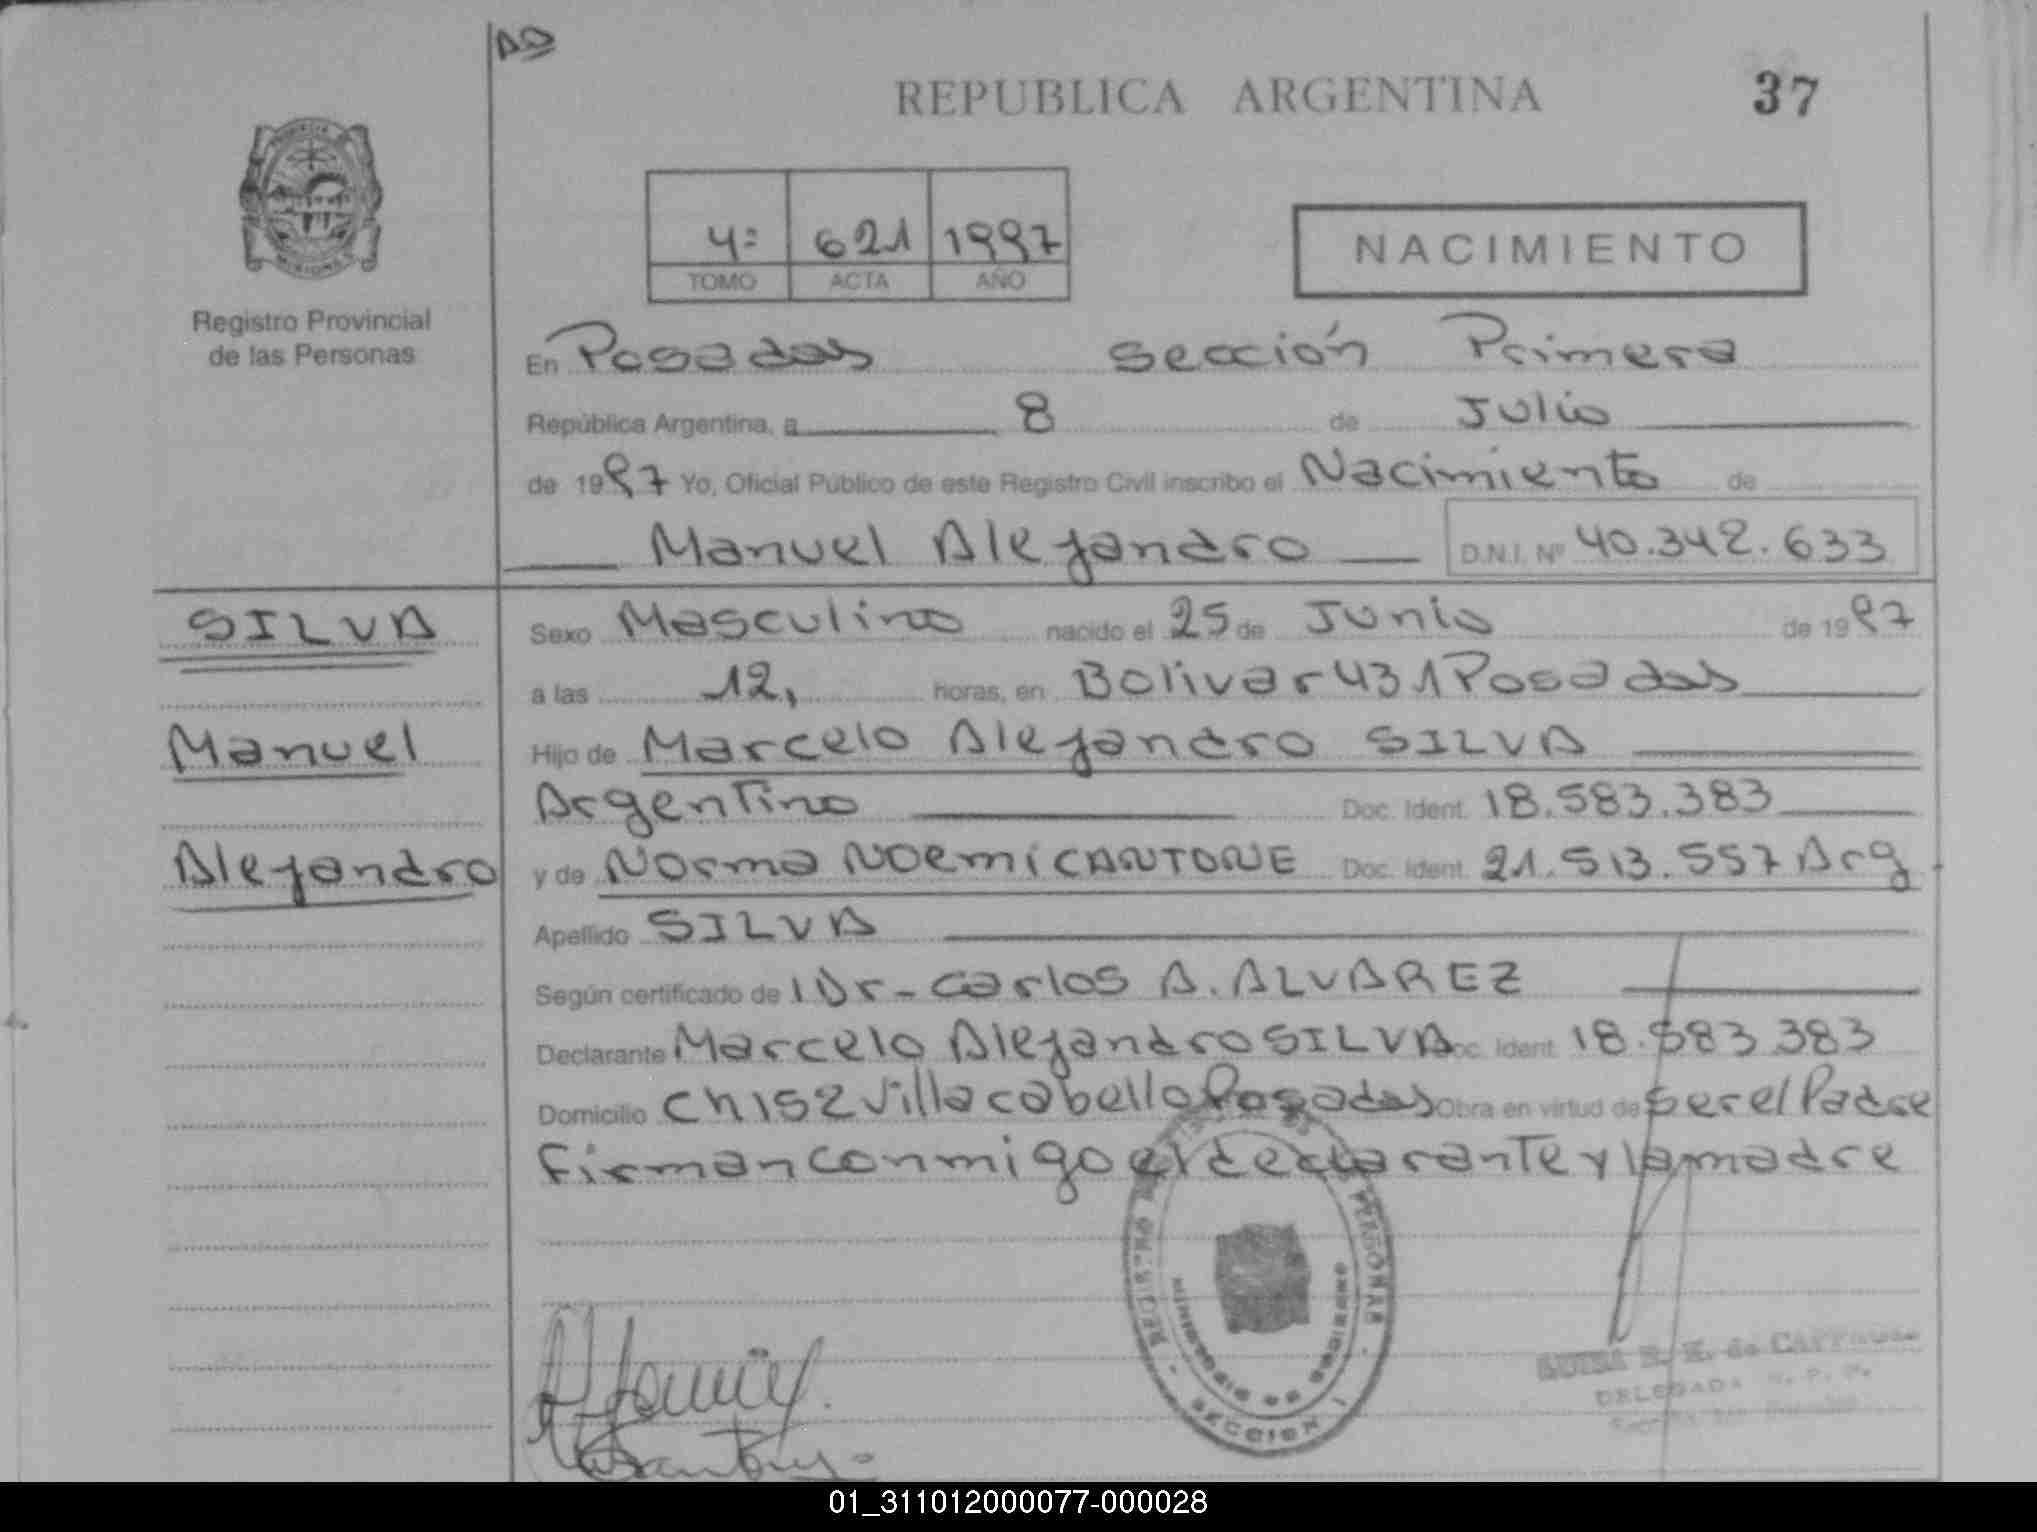 AD
REPUBLICA ARGENTINA 37
4º 621 1997
TOMO ACTA AÑO
NACIMIENTO
MISIONES
Registro Provincial
de las Personas
En Posadas Sección Primera
República Argentina, a 8 de Julio
de 1997 Yo, Oficial Público de este Registro Civil inscribo el Nacimiento de
Manuel Alejandro D.N.I. Nº 40.342.633
SILVA
Manuel
Alejandro
Sexo Masculino nacido el 25 de Junio de 1997
a las 12, horas, en Bolivar 431 Posadas
Hijo de Marcelo Alejandro SILVA
Argentino Doc. Ident. 18.583.383
y de Norma Noemí CANTONE Doc. Ident. 21.513.557 Arg
Apellido SILVA
Según certificado de Dr- Carlos A. ALVAREZ
Declarante Marcelo Alejandro SILVA Doc. Ident. 18.583.383
Domicilio Ch 152 Villa cabello Posadas Obra en virtud de ser el Padre
Firman conmigo el declarante y la madre
REGISTRO DE LAS PERSONAS
MINISTERIO DE GOBIERNO
SECCION 1
LUISA de
DELEGADA R. P. P.
01_311012000077-000028